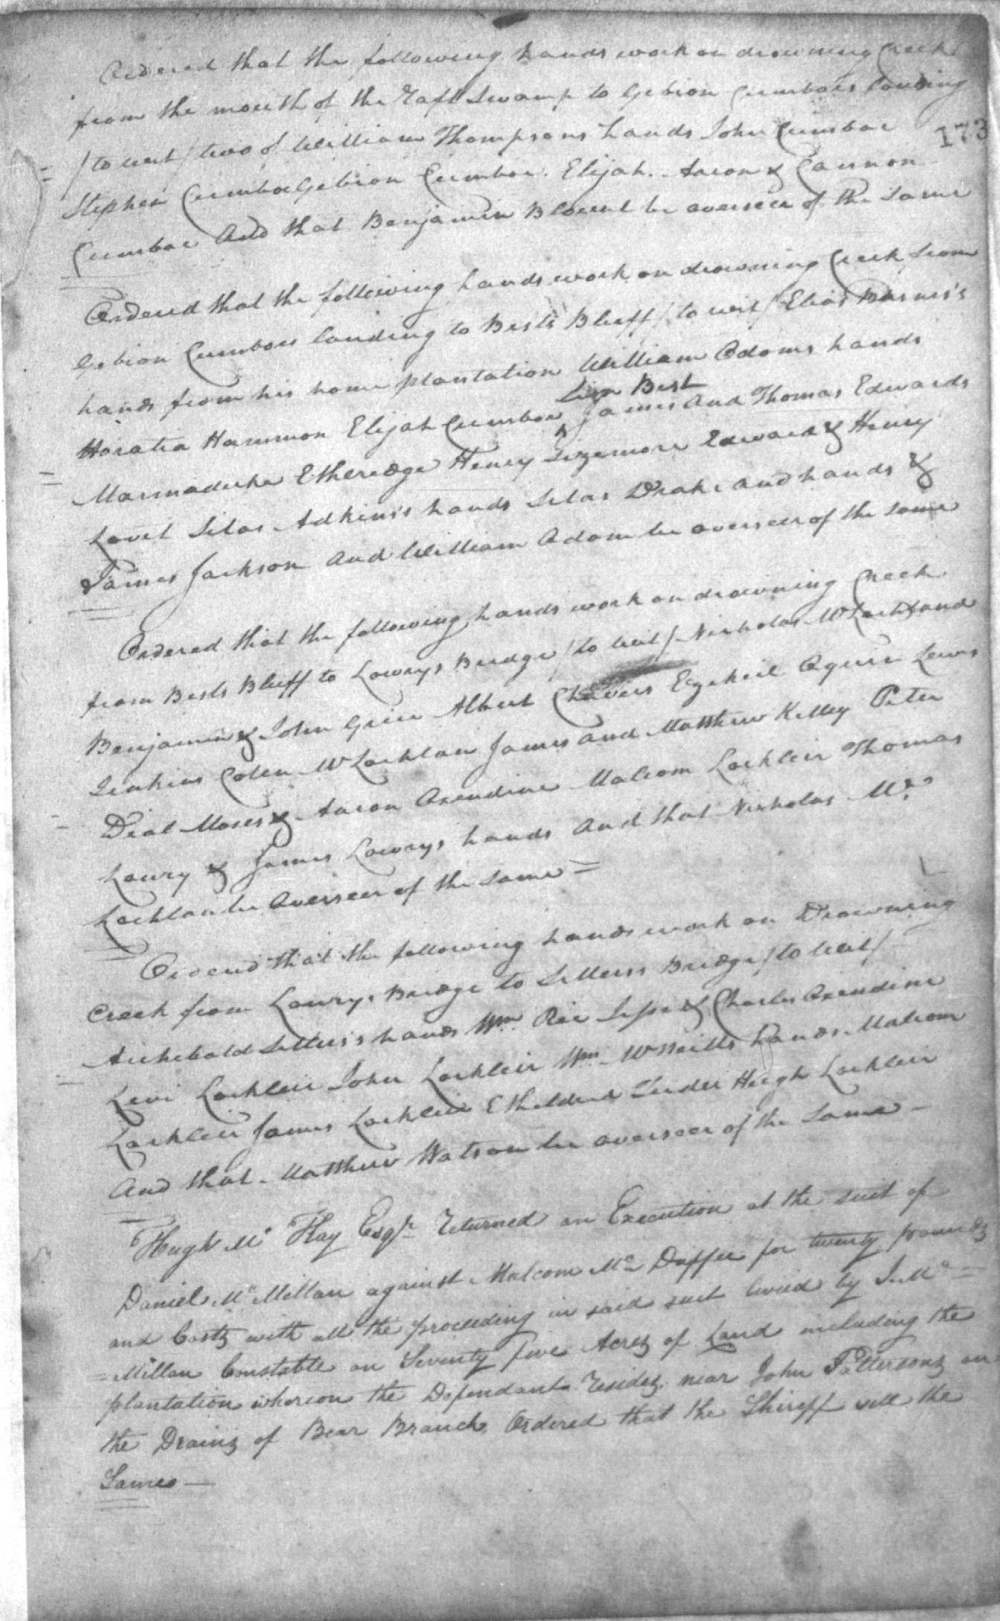 Ordered that the following hands work on drowning Creek
from the mouth of the Raft Swamp to Gebion Cumboes landing
/to wit/ two of William Thompsons hands John Cumboe
173
Stephen Cumboe Gebion Cumboe. Elijah. Aaron & Cannon
Cumboe And that Benjamin Blount be overseer of the Same
Ordered that the following hands work on drowning Creek from
Gebion Cumboes landing to Bests Bluff /to wit/ Elias Barnes's
hands from his home plantation William Adams hands
Horatia Hammon Elijah Cumboe James And Thomas Edwards
Best
Marmaduke Etheredge Henry Sizemore Edward & Henry
Lovet Silas Adkins's hands Silas Drake and hands &
James Jackson And William Adam be overseer of the same
Ordered that the following hands work on drowning Creek
from Bests Bluff to Lowrys Bridge /to wit/ Nicholas McLachland
Benjamin & John Green Albert Chavers Ezekeil Lewis
Jenkins Colen McLachlan James and Matthew Kelley Peter
Dial Moses & Aaron Oxendine Malcom Lockleir Thomas
Lowry & James Lowrys hands And that Nicholas Mc
Lachlan be Overseer of the Same
Ordered that the following hands work on Drowning
Creek from Lowrys Bridge to Sellerss Bridge /to wit/
Archebald Sellers's hands Wm Jesse & Charles Oxendine
Levi Lockleir John Lockleir Wm McNeills hands Malcom
Lockleir James Lockleir Etheldred Hugh Lockleir
And that Matthew Watson be overseer of the Same
Hugh McKay Esqr. returned an Execution at the suit of
Daniel McMillan against Malcom McDuffee for twenty pounds
and Costs with all the proceeding in said suit levied by J. Mc=
=Millan Constable on Seventy five Acres of Land including the
plantation whereon the Defendant resides near John Pattersons on
the Drains of Bear Branch Ordered that the Shireff sell the
Same